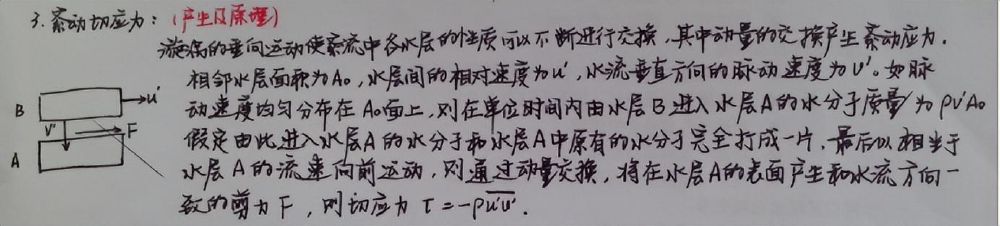 3.紊动切应力：(产生及原理)
漩涡的垂向运动使紊流中各水层的性质可以不断进行交换，其中动量的交换产生紊动应力.
相邻水层面积为A₀，水层间的相对速度为u′，水流垂直方向的脉动速度为υ′。如脉
动速度均匀分布在A₀面上，则在单位时间内由水层B进入水层A的水分子质量为ρυ′A₀
假定由此进入水层A的水分子和水层A中原有的水分子完全打成一片，最后以相当于
水层A的流速向前运动，则通过动量交换，将在水层A的表面产生和水流方向一
致的剪力F，则切应力τ=-ρu̅′̅υ̅′̅.
B
u′
V′
F
A